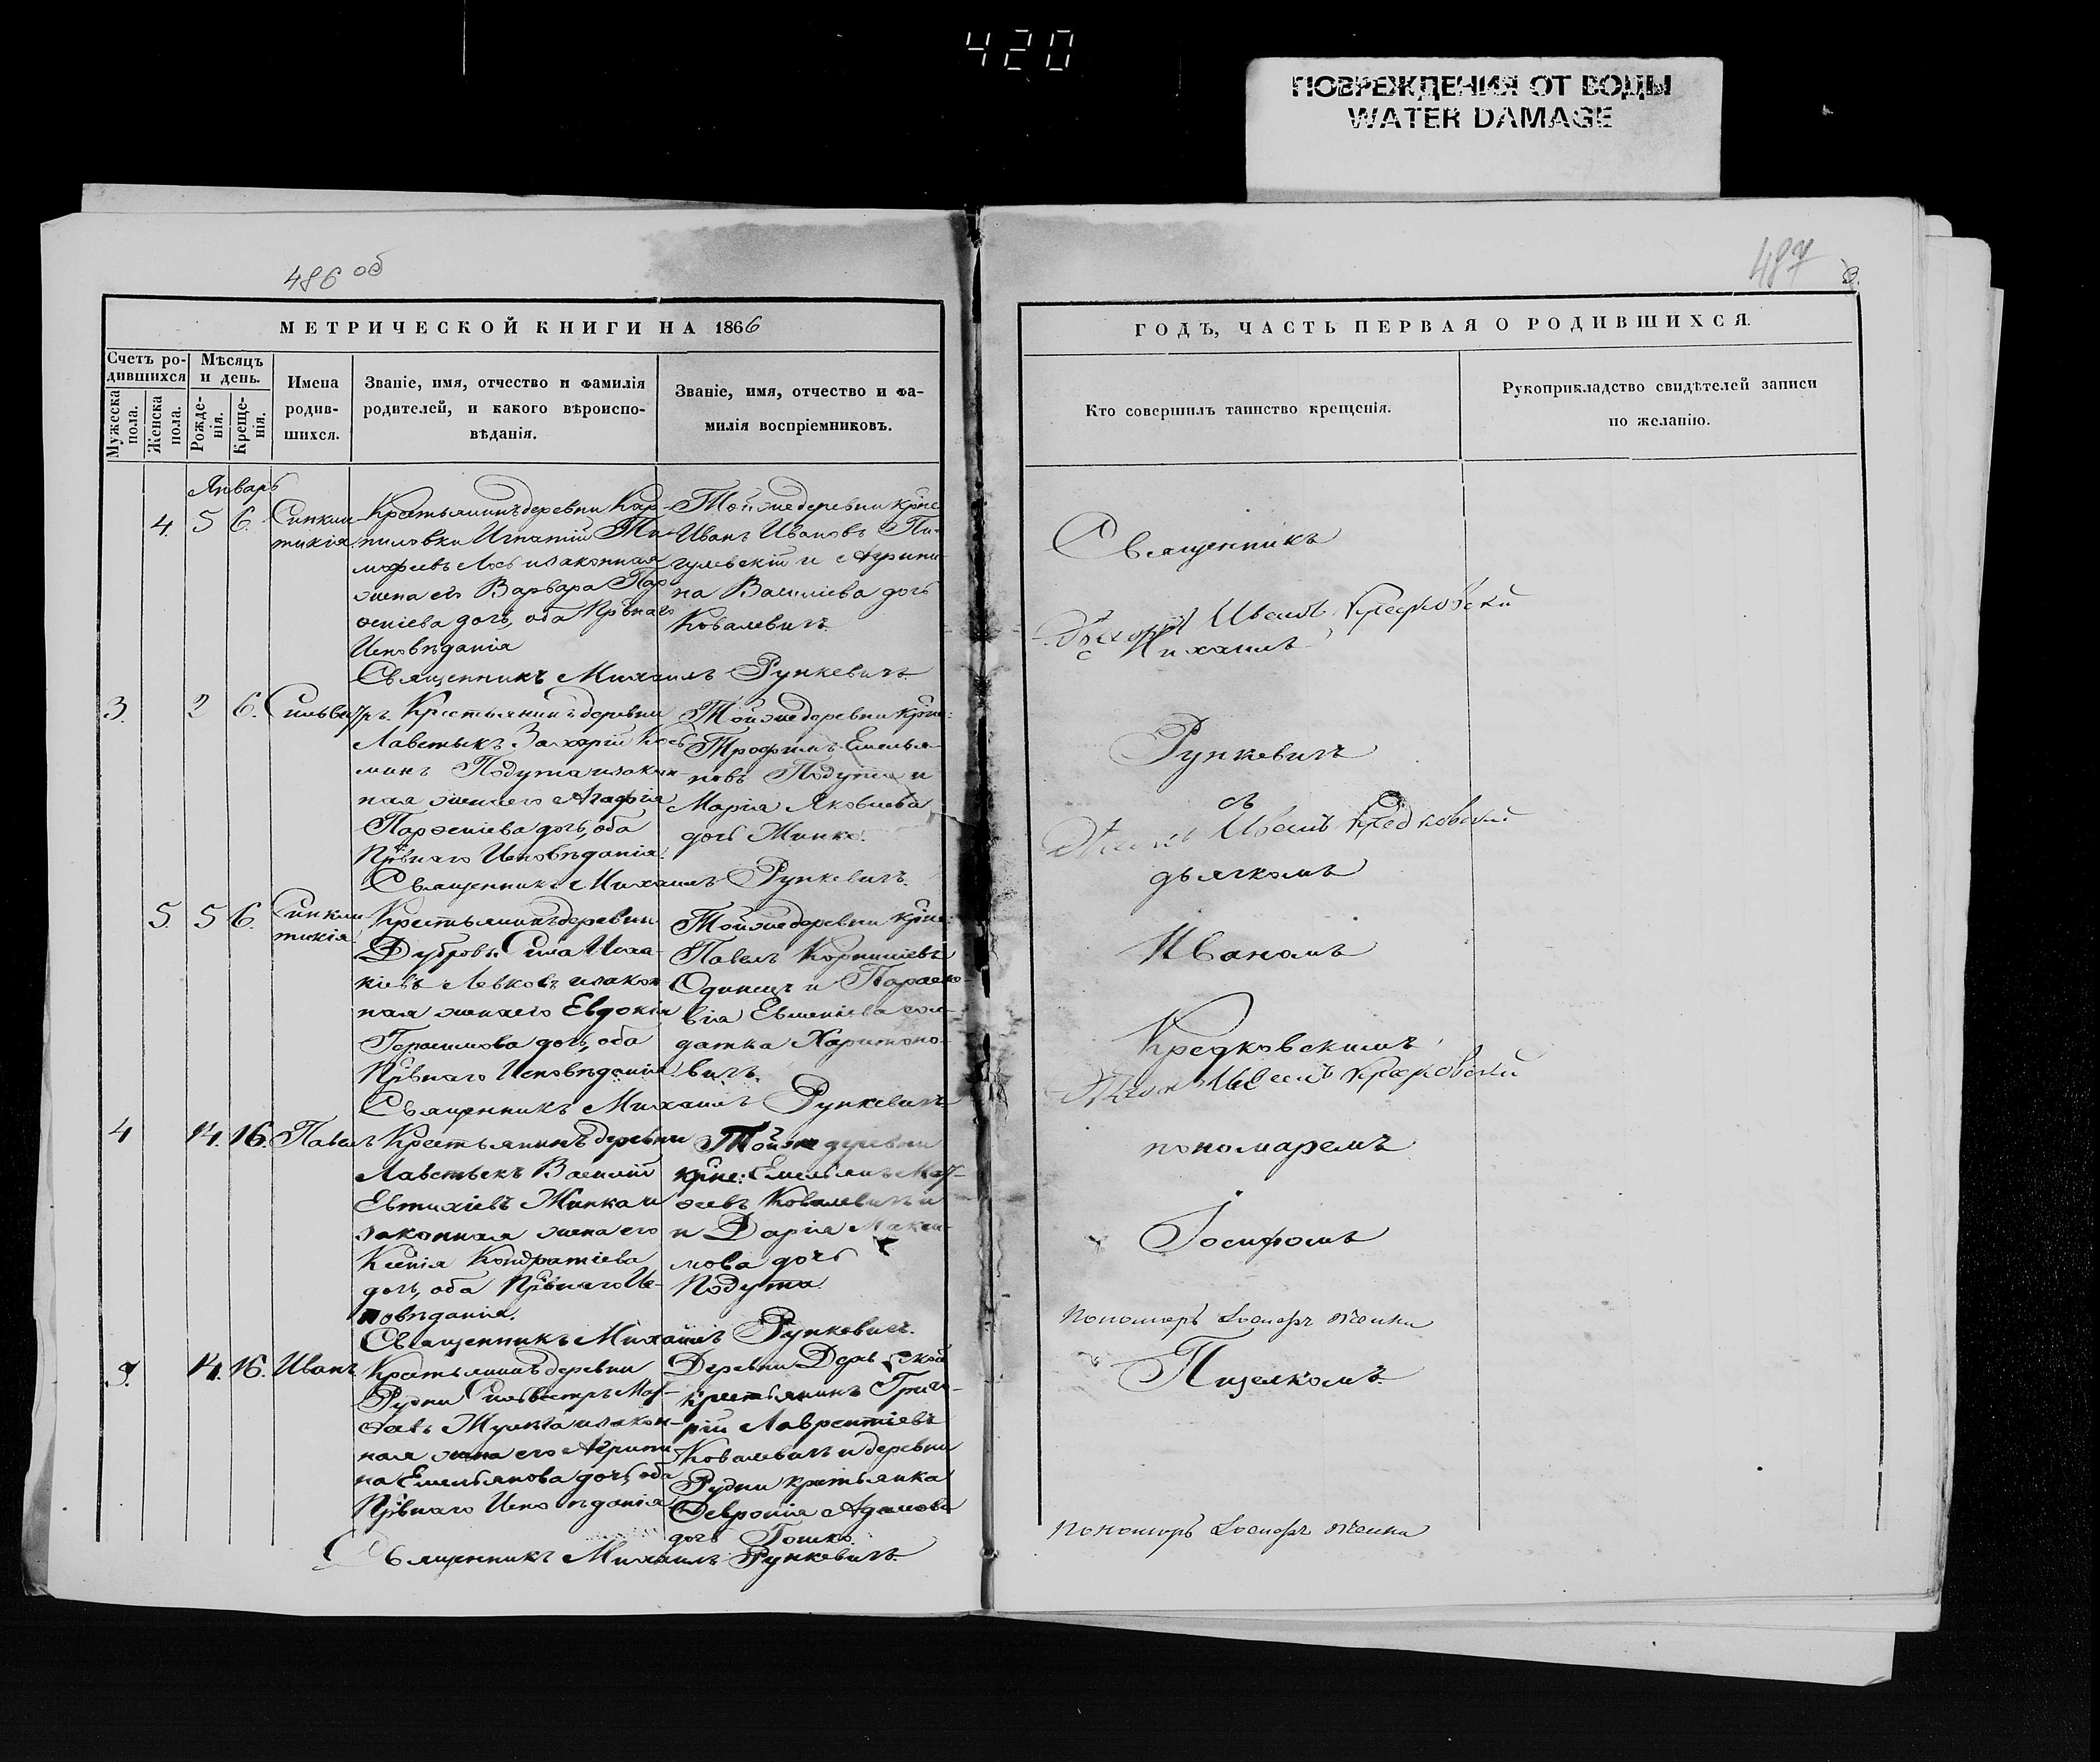 420
ПОВРЕЖДЕНИЯ ОТ ВОДЫ
WATER DAMAGE
486 об
МЕТРИЧЕСКОЙ КНИГИ НА 1866
Счетъ ро-
дившихся
Мѣсяцъ
и день.
Мужеска
пола.
Женска
пола.
Рожде-
нія.
Креще-
нія.
Имена
родив-
шихся.
Званіе, имя, отчество и фамилія
родителей, и какого вѣроиспо-
вѣданія.
Званіе, имя, отчество и фа-
милія воспріемниковъ.
Январь
4. 5 6. Синкли-
тикія.
Крестьянинъ деревни Кар-
пиловки Игнатій Ти-
мофеевъ Лось и законная
жена его Варвара Пар-
ѳеніева дочь, оба Прв̾наго
Исповѣданія
Той же деревни крес
Иванъ Ивановъ Пи-
гулевскій и Агрипи-
на Василіева дочь
Ковалевичъ.
Священникъ Михаилъ Рункевичъ
3. 2 6. Сильвестръ.
Крестьянинъ деревни
Лавстыкъ Захарій
Подута и закон-
ная жена его Агафія
Парѳеніева дочь, оба
Прв̾наго Исповѣданія.
Той же деревни крес:
Трофимъ Емелья-
новъ Подута и
Марія Яковлева
дочь Жинко.
Священникъ Михаилъ Рункевичъ.
5. 5 6. Синкли
тикія.
Крестьянинъ деревни
Дубровы Сила Иса-
кіевъ Левковъ и закон
ная жена его Евдокія
Герасимова дочь, оба
Прв̾наго Исповѣданія.
Той же деревни крес:
Павелъ Корниліевъ
Одинецъ и Параске-
вія Евменіева сол-
датка Харитоно-
вичъ.
Священникъ Михаилъ Рункевичъ
4 14. 16. Павелъ
Крестьянинъ деревни
Лавстыкъ Василій
Евтихіевъ Жинка и
законная жена его
Ксенія Кондратіева
дочь, оба Прв̾наго Ис-
повѣданія.
Той же деревни
крес: Емельянъ Мат-
ѳеевъ Ковалевичъ и
и Дарія Макси-
мова дочь
Подута.
Священникъ Михаилъ Рункевичъ.
5. 14. 16. Иванъ
Крестьянинъ деревни
Рудни Сильвестръ Мат-
ѳеевъ и закон-
ная жена его Агрипи-
на Емельянова дочь, оба
Прв̾наго Исповѣданія
Деревни
крестьянинъ Григо-
рій Лаврентіевъ
Ковалевичъ и деревни
Рудни крестьянка
Февронія Адамова
дочь Гошко.
Священникъ Михаилъ Рункевичъ.
487
3.
ГОДЪ, ЧАСТЬ ПЕРВАЯ О РОДИВШИХСЯ.
Кто совершилъ таинство крещенія.
Рукоприкладство свидѣтелей записи
по желанію.
Священникъ
Иванъ Кредковскій
Михаилъ
Рункевичъ
съ
Иванъ Кредковскій
дьячкомъ
Иваномъ
Кредковскимъ,
Иванъ Кредковскій
пономаремъ
Іосифомъ
Пономарь Іосифъ
Пономарь Іосифъ